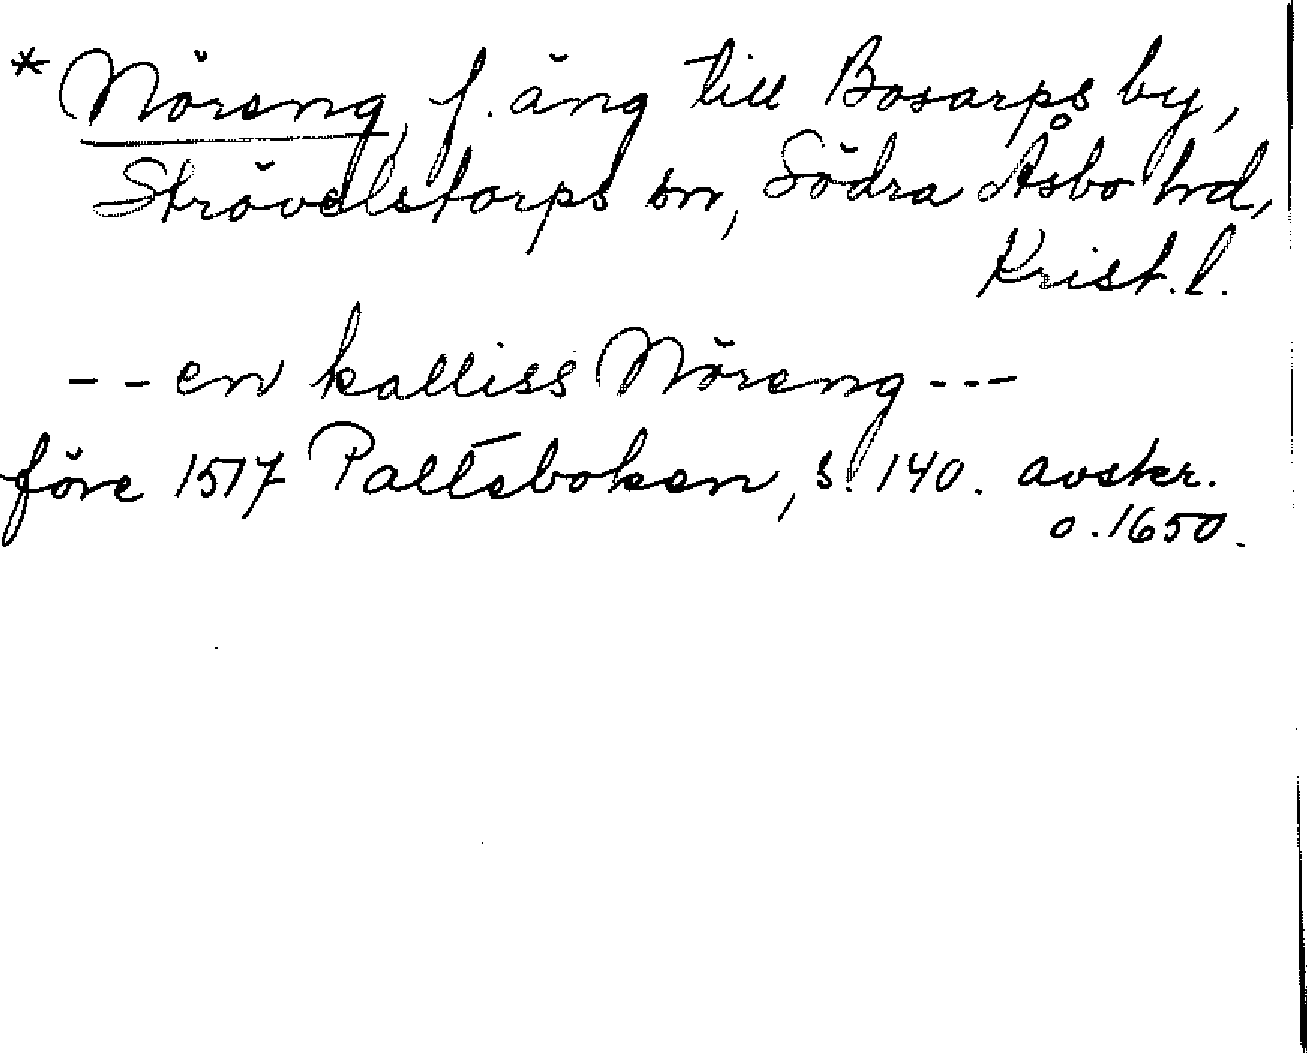 *Nöreng, f. äng till Bosarps by,
Strövelstorps sn, Södra Åsbo hrd,
Krist. l.
-- en kalliss Nöreng ---
före 1517 Palteboken, s. 140. avskr.
o. 1650.